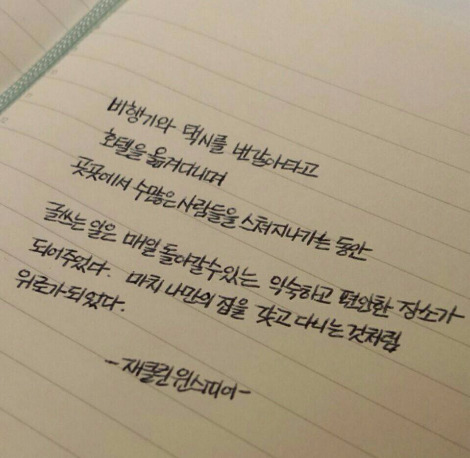 비행기와 택시를 번갈아타고
호텔을 옮겨다니며
곳곳에서 수많은 사람들을 스쳐지나가는 동안
글쓰는 일은 매일 돌아갈 수 있는 익숙하고 편안한 장소가
되어주었다. 마치 나만의 집을 갖고 다니는 것처럼
위로가 되었다.
- 재클린 윈스피어 -